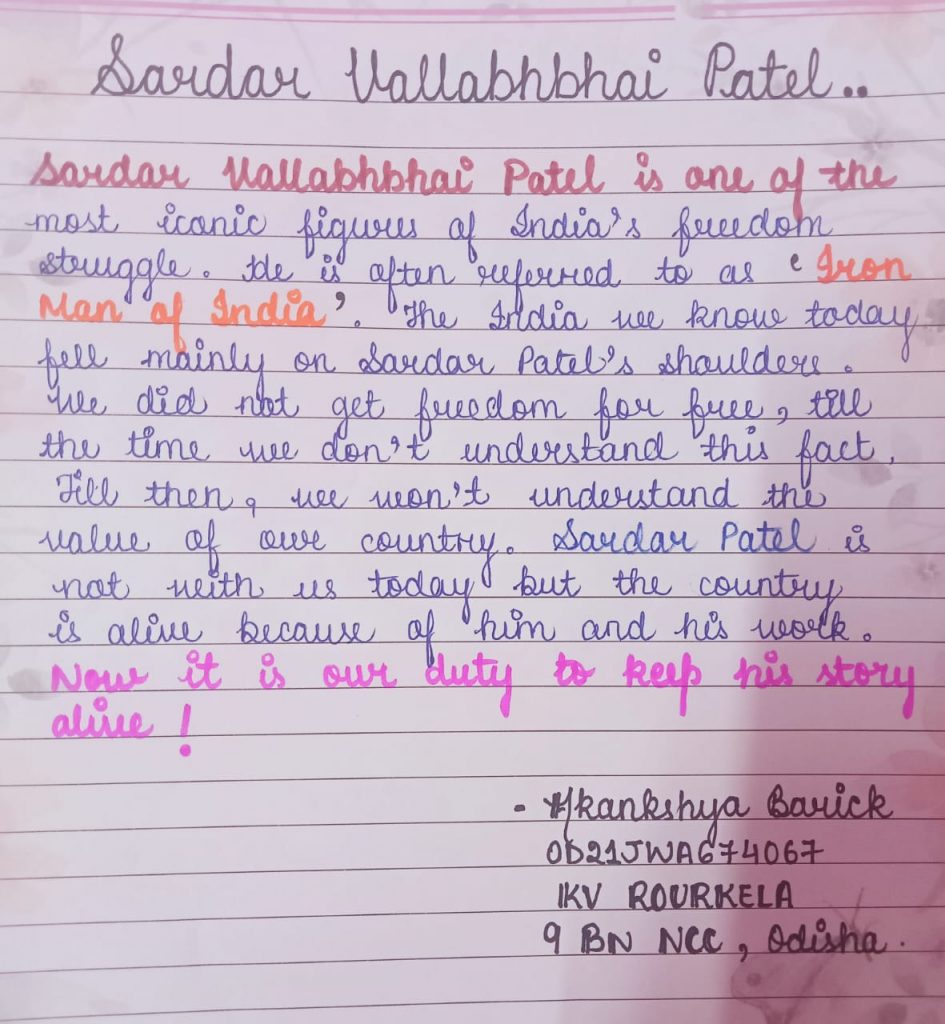 Sardar Vallabhbhai Patel..
Sardar Vallabhbhai Patel is one of the
most iconic figures of India's freedom
struggle. He is often referred to as 'Iron
Man of India'. The India we know today
fell mainly on Sardar Patel's shoulders.
We did not get freedom for free, till
the time we don't understand this fact.
Till then, we won't understand the
value of our country. Sardar Patel is
not with us today but the country
is alive because of him and his work.
Now it is our duty to keep his story
alive!
- Akankshya Barick
OD21JWA674067
1KV ROURKELA
9 BN NCC, Odisha.